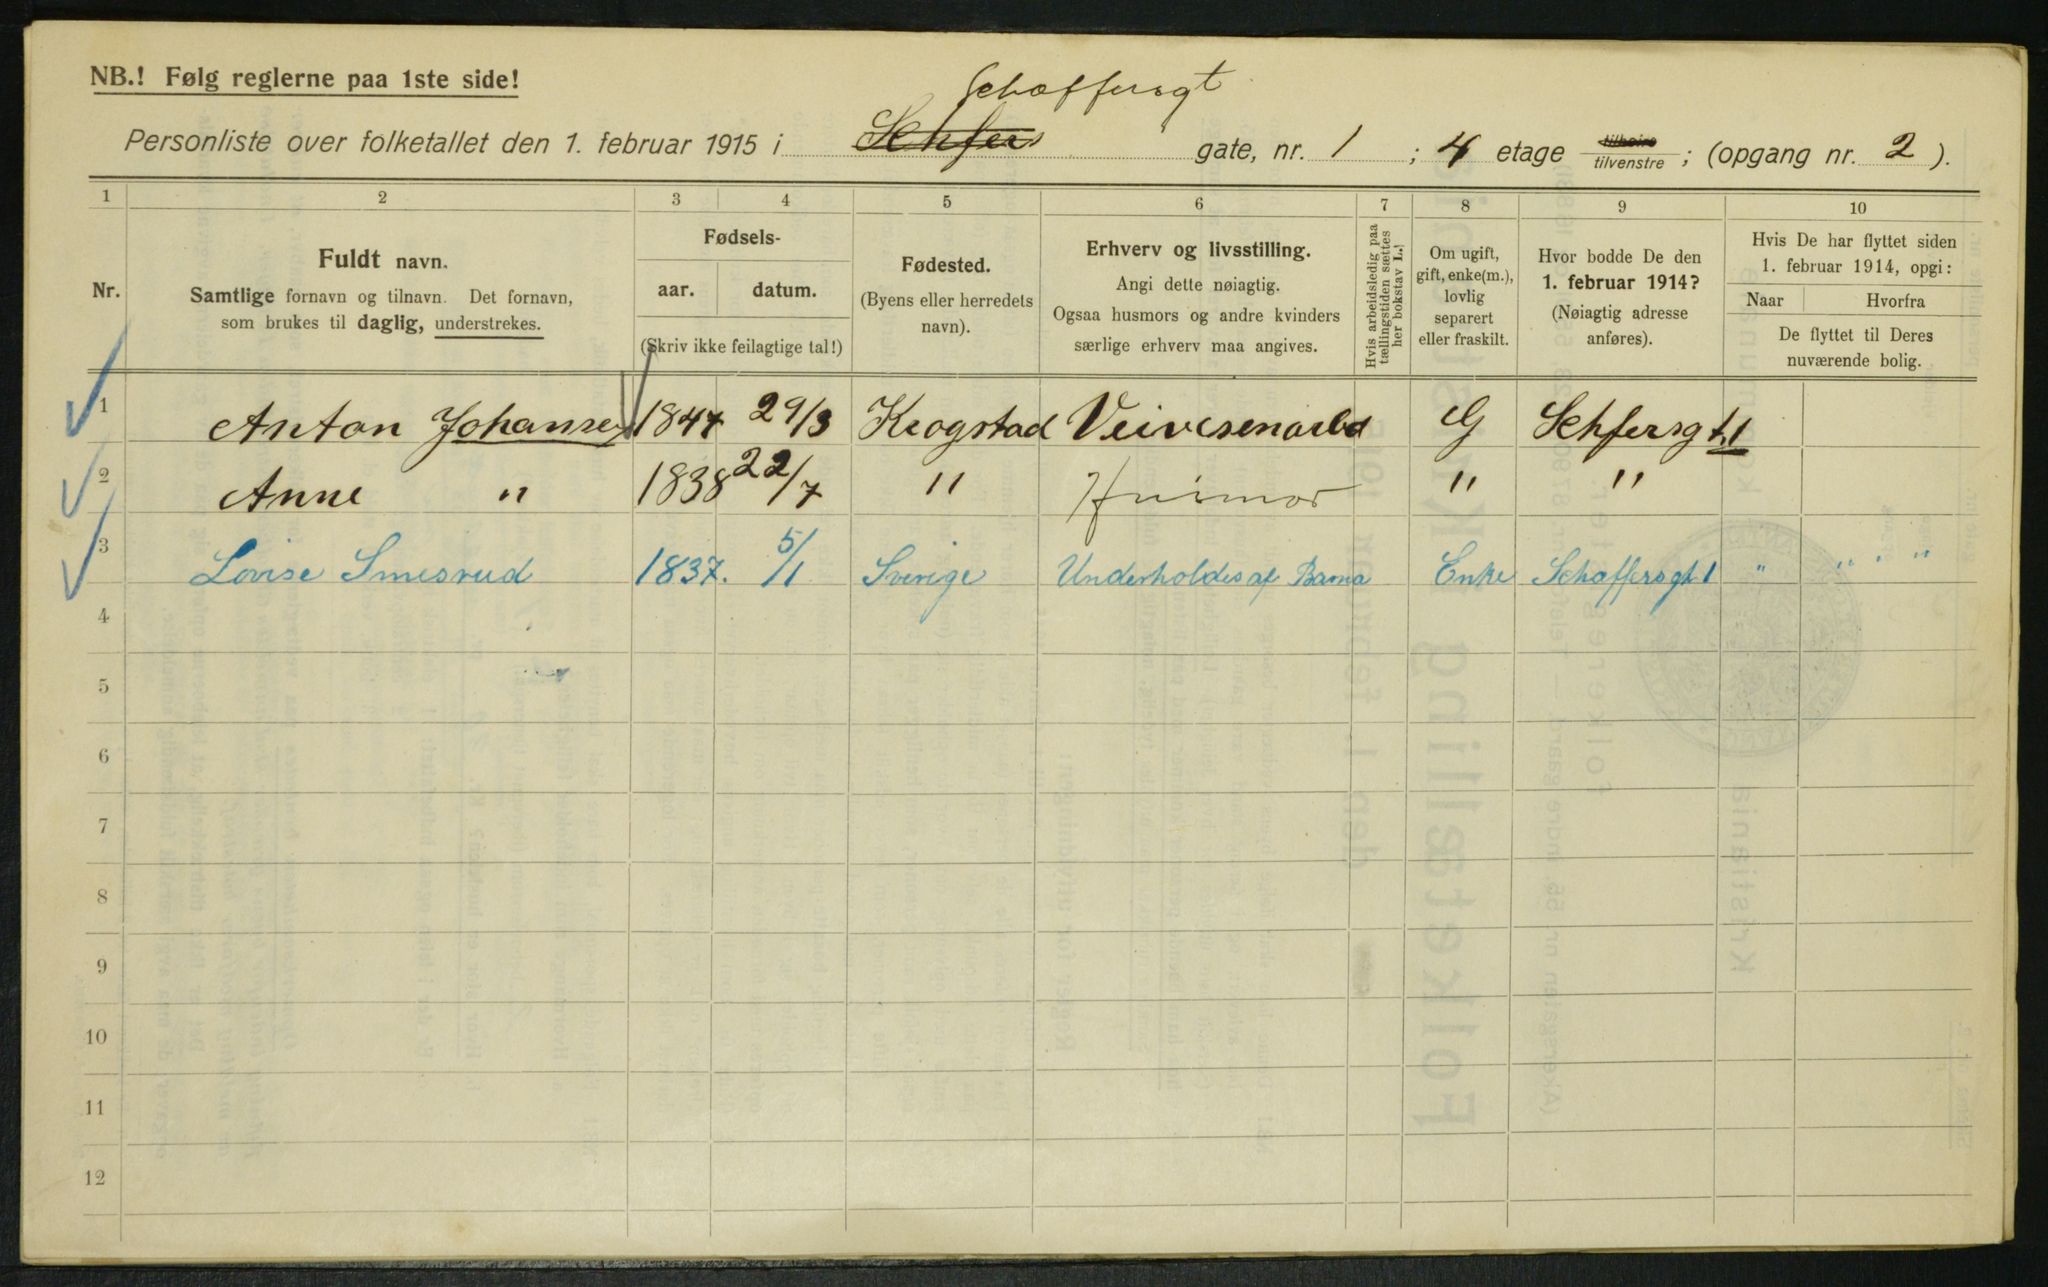 NB.! Følg reglerne paa 1ste side!
Schaffersgt
Personliste over folketallet den 1. februar 1915 i Schfers gate, nr. 1; 4 etage tilhøire tilvenstre; (opgang nr. 2).
1 2 3 4 5 6 7 8 9 10
Nr.
Fuldt navn.
Samtlige fornavn og tilnavn. Det fornavn,
som brukes til daglig, understrekes.
Fødsels-
aar. datum.
(Skriv ikke feilagtige tal!)
Fødested.
(Byens eller herredets
navn).
Erhverv og livsstilling.
Angi dette nøiagtig.
Ogsaa husmors og andre kvinders
særlige erhverv maa angives.
Hvis arbeidsledig paa
tællingstiden sættes
her bokstav L.!
Om ugift,
gift, enke(m.),
lovlig
separert
eller fraskilt.
Hvor bodde De den
1. februar 1914?
(Nøiagtig adresse
anføres).
Hvis De har flyttet siden
1. februar 1914, opgi:
Naar Hvorfra
De flyttet til Deres
nuværende bolig.
1 Anton Johansen 1847 29/3 Krogstad Veivesenarbd G Schfersgt.1
2 Anne " 1838 22/7 " Husmor " "
3 Lovise Smesrud 1837. 5/1 Sverige Underholdes af Barna Enke Schaffersgt 1 " " . "
4
5
6
7
8
9
10
11
12